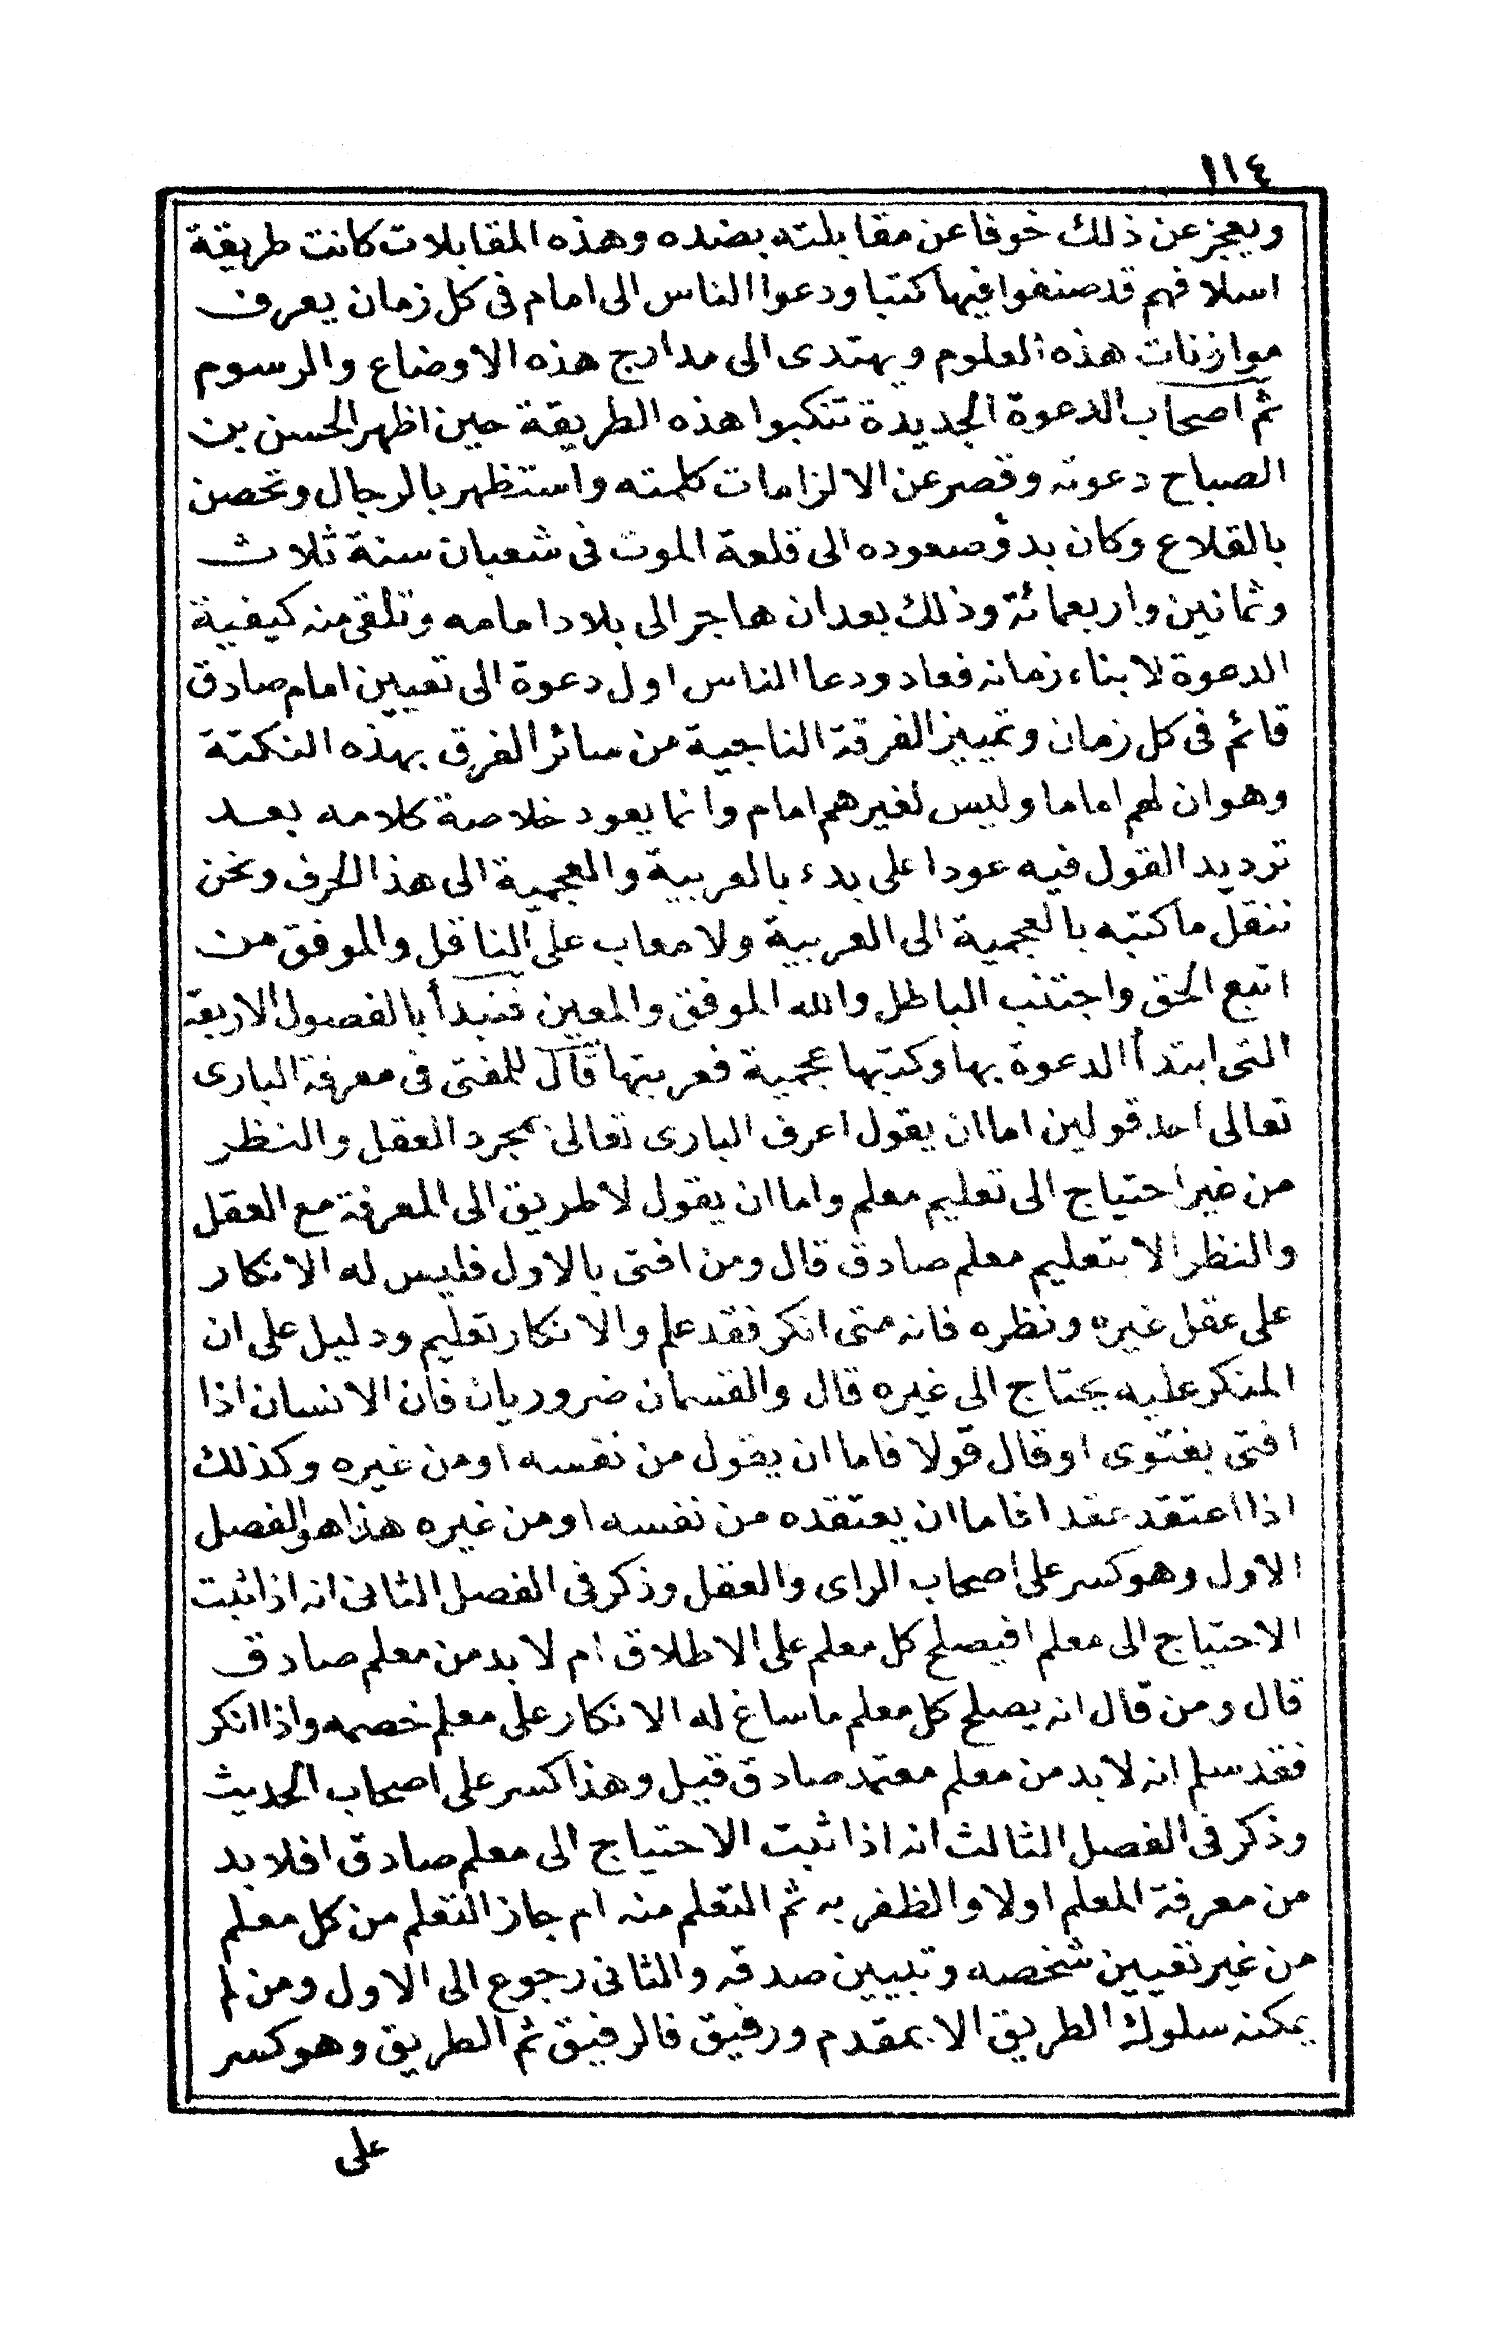 ١١٤
ويعجز عن ذلك خوفا عن مقابلته بضده وهذه المقابلات كانت طريقة
اسلافهم قد صنفوا فيها كتبا ودعوا الناس الى امام فى كل زمان يعرف
موازنات هذه العلوم ويهتدى الى مدارج هذه الاوضاع والرسوم
ثم اصحاب الدعوة الجديدة تنكبوا هذه الطريقة حين اظهر الحسن بن
الصباح دعوته وقصر عن الالزامات كلمته واستظهر بالرجال وتحصن
بالقلاع وكان بدؤ صعوده الى قلعة الموت فى شعبان سنة ثلاث
وثمانين واربعمائة وذلك بعد ان هاجر الى بلاد امامه وتلقى منه كيفية
الدعوة لابناء زمانه فعاد ودعا الناس اول دعوة الى تعيين امام صادق
قائم فى كل زمان وتمييز الفرقة الناجية من سائر الفرق بهذه النكتة
وهو ان لهم اماما وليس لغيرهم امام وانما يعود خلاصة كلامه بعد
ترديد القول فيه عودا على بدء بالعربية والعجمية الى هذا الحرف ونحن
ننقل ما كتبه بالعجمية الى العربية ولا معاب على الناقل والموفق من
اتبع الحق واجتنب الباطل والله الموفق والمعين فنبدأ بالفصول الاربعة
التى ابتدأ الدعوة بها وكتبها عجمية فعربتها قال للمفتى فى معرفة البارى
تعالى احد قولين اما ان يقول اعرف البارى تعالى بمجرد العقل والنظر
من غير احتياج الى تعليم معلم واما ان يقول لا طريق الى المعرفة مع العقل
والنظر الا بتعليم معلم صادق قال ومن افتى بالاول فليس له الانكار
على عقل غيره ونظره فانه متى انكر فقد علم والانكار تعليم ودليل على ان
المنكر عليه يحتاج الى غيره قال والقسمان ضروريان فان الانسان اذا
افتى بفتوى او قال قولا فاما ان يقول من نفسه او من غيره وكذلك
اذا اعتقد عقدا فاما ان يعتقده من نفسه او من غيره هذا هو الفصل
الاول وهو كسر على اصحاب الراى والعقل وذكر فى الفصل الثانى انه اذا ثبت
الاحتياج الى معلم افيصلح كل معلم على الاطلاق ام لا بد من معلم صادق
قال ومن قال انه يصلح كل معلم ما ساغ له الانكار على معلم خصمه واذا انكر
فقد سلم انه لا بد من معلم معتمد صادق قيل وهذا كسر على اصحاب الحديث
وذكر فى الفصل الثالث انه اذا ثبت الاحتياج الى معلم صادق افلا بد
من معرفة المعلم اولا والظفر به ثم التعلم منه ام جاز التعلم من كل معلم
من غير تعيين شخصه وتبيين صدقه والثانى رجوع الى الاول ومن لم
يمكنه سلوك الطريق الا بمقدم ورفيق فالرفيق ثم الطريق وهو كسر
على